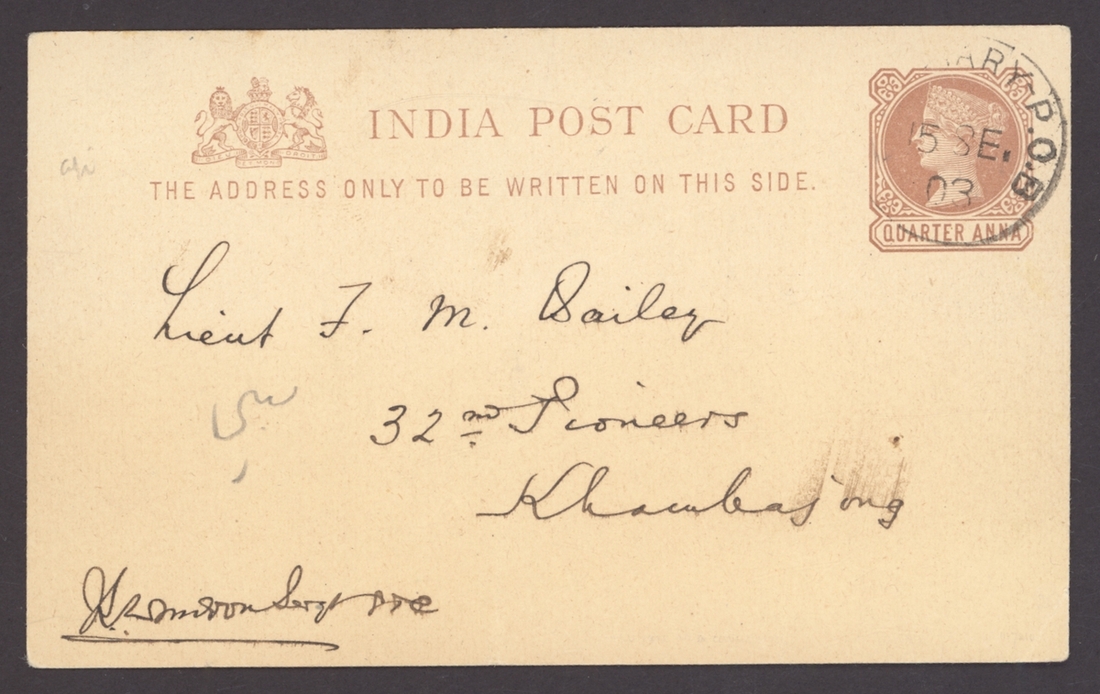 INDIA POST CARD
THE ADDRESS ONLY TO BE WRITTEN ON THIS SIDE.
ARY-P.O.B
15 SE.
03
QUARTER ANNA
Lieut F. M. Bailey
32nd Pioneers
Khambajong
Sergt